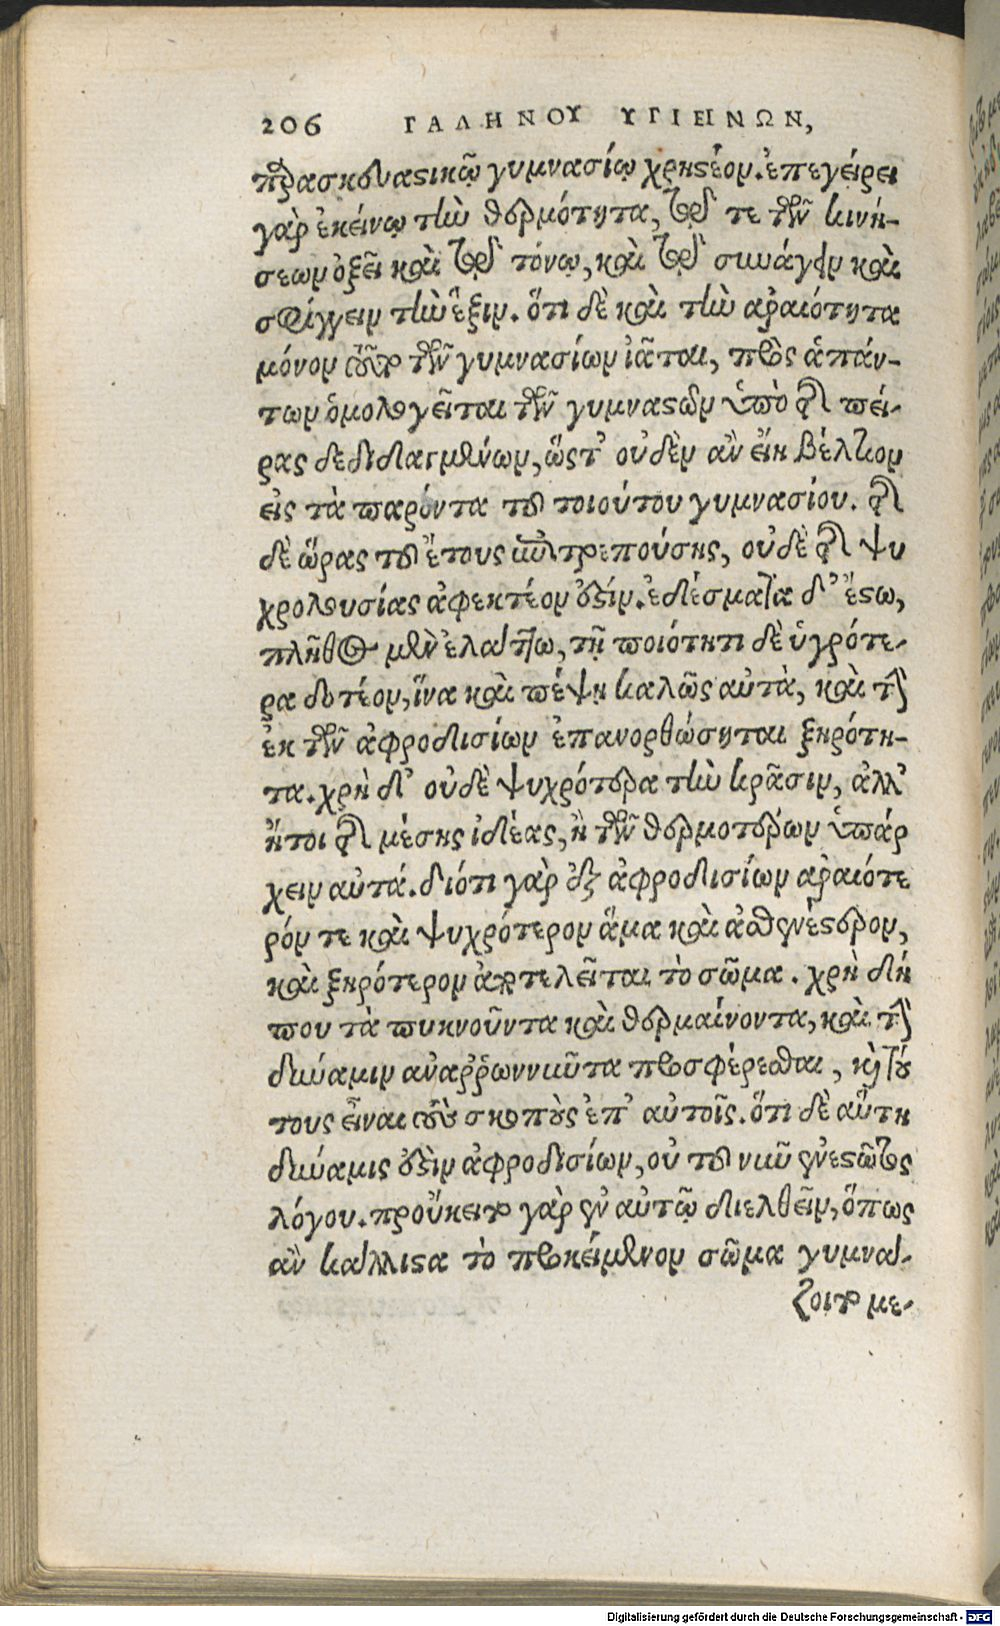 206 ΓΑΛΗΝΟΥ ΥΓΙΕΙΝΩΝ,
παρασκευαστικῷ γυμνασίῳ χρηστέον. ἐπεγείρει
γὰρ ἐκείνῳ τὴν θερμότητα, διὰ τε τῶν κινή-
σεων ὀξεῖ καὶ διὰ τόνῳ, καὶ διὰ συνάγειν καὶ
σφίγγειν τὴν ἕξιν. ὅτι δὲ καὶ τὴν ἀραιότητα
μόνον τῶν γυμνασίων ἰᾶται, πρὸς ἁπάν-
των ὁμολογεῖται τῶν γυμναστῶν ὑπὸ τῆς πεί-
ρας δεδιδαγμένων, ὥστ᾽ οὐδὲν ἂν εἴη βέλτιον
εἰς τὰ παρόντα τοῦ τοιούτου γυμνασίου. τῆς
δὲ ὥρας τοῦ ἔτους ἐπιτρεπούσης, οὐδὲ τῆς ψυ
χρολουσίας ἀφεκτέον ἐστίν. ἐδέσματα δ᾽ ἔστω,
πλῆθος μὲν ἐλάττω, τῇ ποιότητι δὲ ὑγρότε-
ρα δοτέον, ἵνα καὶ πέψῃ καλῶς αὐτὰ, καὶ τὴν
ἐκ τῶν ἀφροδισίων ἐπανορθώσηται ξηρότη-
τα. χρὴ δ᾽ οὐδὲ ψυχρότερα τὴν κρᾶσιν, ἀλλ᾽
ἤτοι τῆς μέσης ἰδέας, ἢ τῶν θερμοτέρων ὑπάρ
χειν αὐτά. διότι γὰρ ἐξ ἀφροδισίων ἀραιότε
ρόν τε καὶ ψυχρότερον ἅμα καὶ ἀσθενέστερον,
καὶ ξηρότερον ἀποτελεῖται τὸ σῶμα. χρὴ δή
που τὰ πυκνοῦντα καὶ θερμαίνοντα, καὶ τὴν
δύναμιν ἀναῤῥωννῦντα προσφέρεσθαι, καὶ τού
τους εἶναι τοὺς σκοποὺς ἐπ᾽ αὐτοῖς. ὅτι δὲ αὕτη
δύναμις ἐστὶν ἀφροδισίων, οὐ τοῦ νῦν ἐνεστῶτος
λόγου. προὔκειται γὰρ ἐν αὐτῷ διελθεῖν, ὅπως
ἂν κάλλιστα τὸ προκείμενον σῶμα γυμνά-
ζοιτο με-
Digitalisierung gefördert durch die Deutsche Forschungsgemeinschaft - DFG